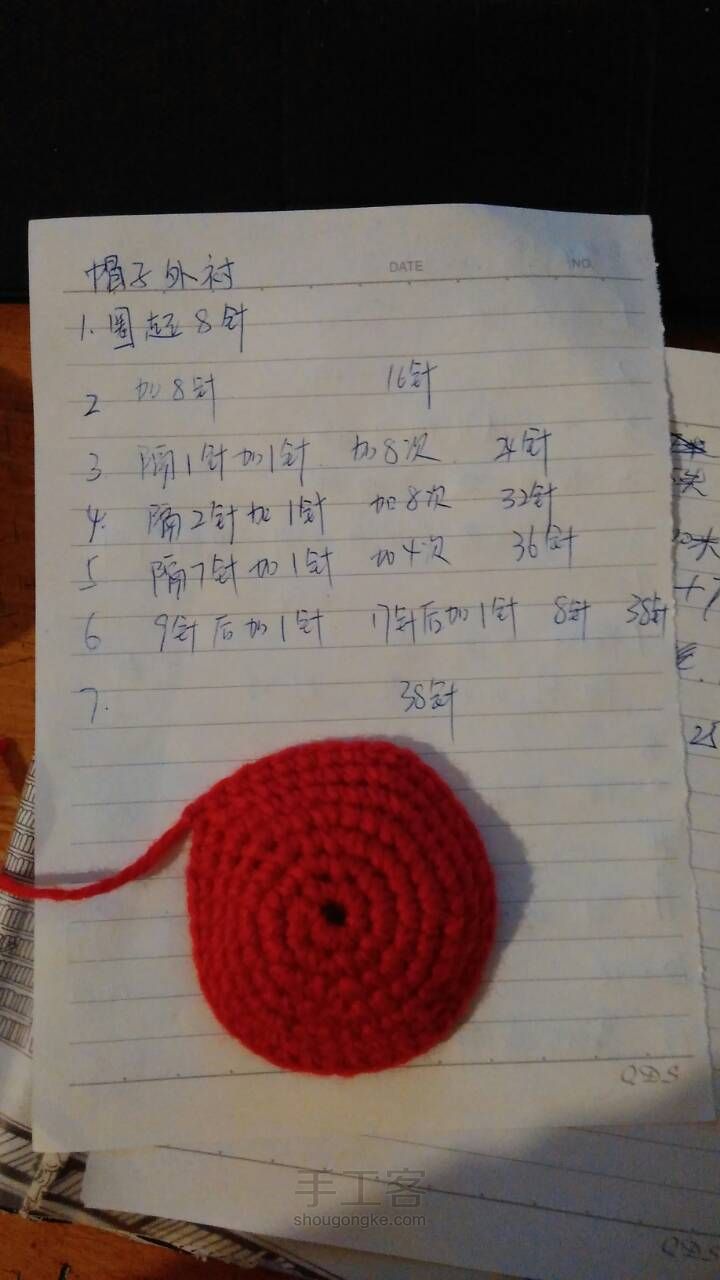 DATE NO.
帽子外衬
1. 圈起8针
2 加8针 16针
3 隔1针加1针 加8次 24针
4. 隔2针加1针 加8次 32针
5 隔7针加1针 加4次 36针
6 9针后加1针 17针后加1针 8针 38针
7. 38针
QDS
手工客
shougongke.com